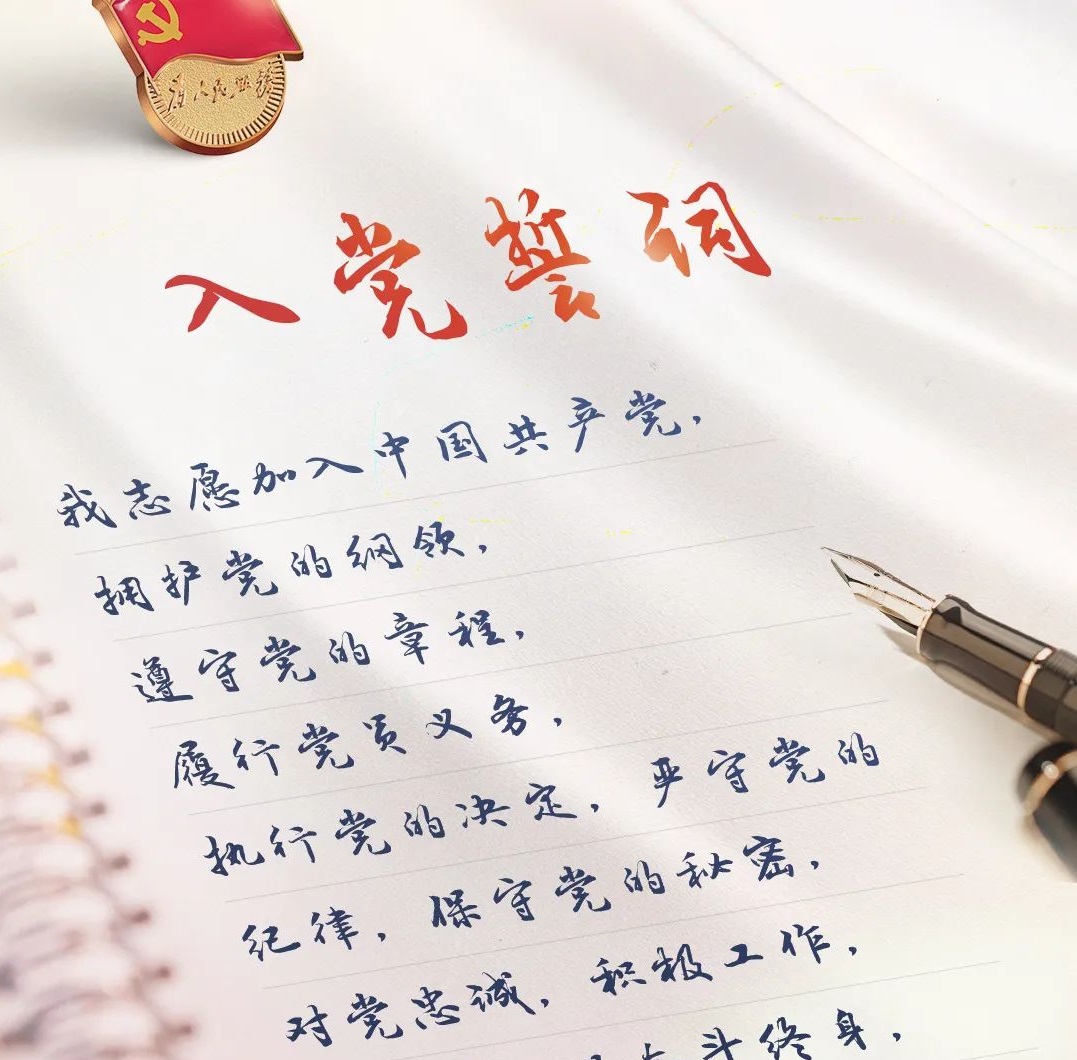 为人民服务
入党誓词
我志愿加入中国共产党，
拥护党的纲领，
遵守党的章程，
履行党员义务，
执行党的决定，严守党的
纪律，保守党的秘密，
对党忠诚，积极工作，
斗终身，